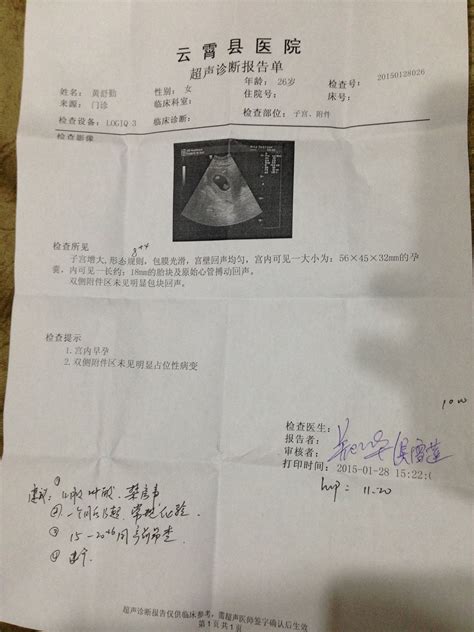 云霄县医院
超声诊断报告单
姓名: 黄舒勤 性别: 女 年龄: 26岁 检查号: 20150128026
来源: 门诊 临床科室: 住院号: 床号:
检查设备: LOGIQ 3 临床诊断: 检查部位: 子宫、附件
检查影像
检查所见
8+4
子宫增大,形态规则,包膜光滑,宫壁回声均匀,宫内可见一大小为: 56×45×32mm的孕
囊,内可见一长约: 18mm的胎块及原始心管搏动回声。
双侧附件区未见明显包块回声。
检查提示
1.宫内早孕
2.双侧附件区未见明显占位性病变
检查医生:
报告者:
审核者:
打印时间: 2015-01-28 15:22:
lmp = 11.20
建议: ①
②
③ 15-20
④
超声诊断报告仅供临床参考,需超声医师签字确认后生效
第1页共1页